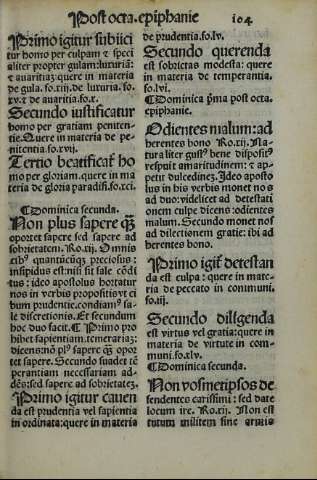 Post octa. epiphanie 104
Primo igitur subijci
tur homo per culpam & speci
aliter propter gulam: luxuriā:
& auaritiaʒ: quere in materia
de gula. fo.xiij. de luxuria. fo.
xv. & de auaritia. fo.x.
Secundo iustificatur
homo per gratiam peniten-
tie. Quere in materia de pe-
nitentia. fo.xvij.
Tertio beatificat᷑ ho
mo per gloriam. quere in ma
teria de gloria paradisi. fo.xcj.
¶ Dominica secunda.
Non plus sapere q̄ʒ
oportet sapere sed sapere ad
sobrietatem. Ro.xij. Omnis
cibus quantūcūqʒ preciosus:
insipidus est: nisi sit sale cōdi
tus: ideo apostolus hortatur
nos in verbis propositis vt ci
bum prudentie condiamus sa-
le discretionis. Et secundum
hoc duo facit. ¶ Primo pro
hibet sapientiam temerariaʒ:
dicens: nō plus sapere q̄ʒ opor
tet sapere. Secundo suadet tē
perantiam necessariam ad-
dēs: sed sapere ad sobrietateʒ.
Primo igitur cauen
da est prudentia vel sapientia
in ordinata: quere in materia
de prudentia. fo.lv.
Secundo querenda
est sobrietas modesta: quere
in materia de temperantia.
fo.lvi.
¶ Dominica p̄ma post octa.
epiphanie.
Odientes malum: ad
herentes bono Ro.xij. Na
turaliter gustus bene dispositus
respuit amaritudinem: & ap
petit dulcedineʒ. Ideo aposto
lus in his verbis monet nos
ad duo: videlicet ad detestati
onem culpe dicens: odientes
malum. Secundo monet nos
ad dilectionem gratie: ibi ad
herentes bono.
Primo igit᷑ detestan
da est culpa: quere in mate-
ria de peccato in communi.
fo.iij.
Secundo diligenda
est virtus vel gratia: quere in
materia de virtute in com-
muni. fo.xlv.
¶ Dominica secunda.
Non vosmetipsos de
fendentes carissimi: sed date
locum ire. Ro.xij. Non est
tutum militem sine armis